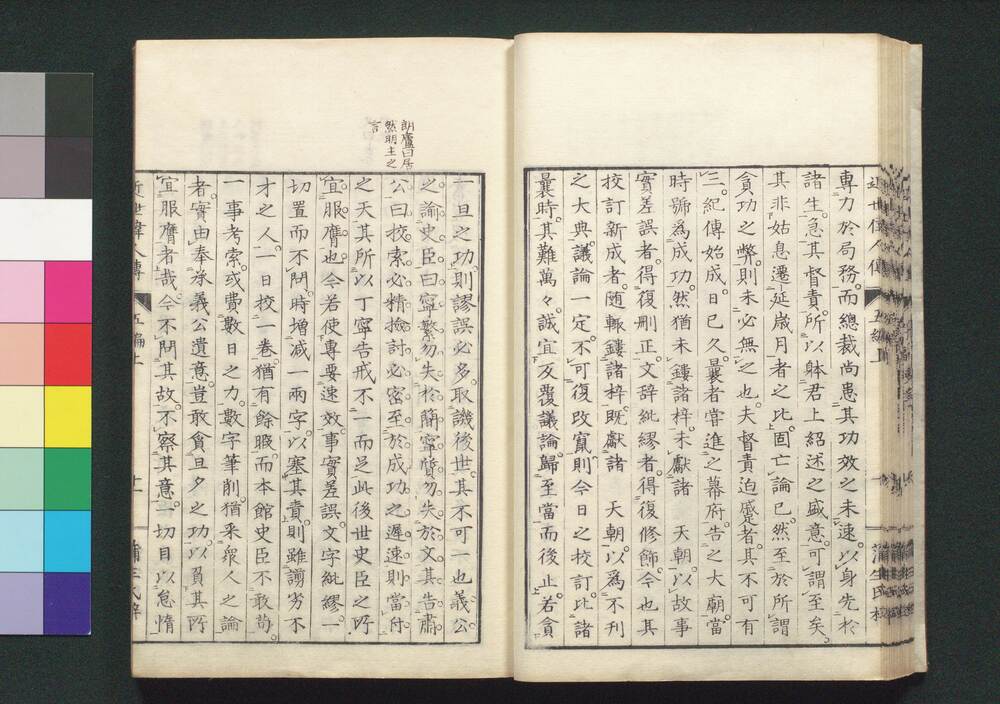 專力於局務。而總裁尚患其功效之未速。以身先於
諸生。急其督責。所以躰君上紹述之盛意。可謂至矣。
其非姑息遷延歲月者之比。固亡論已。然至於所謂
貪功之弊。則未必無之也。夫督責迫蹙者。其不可有
三。紀傳始成。日已久。曩者當進之幕府。告之大廟。當
時號爲成功。然猶未鏤諸梓。未獻諸 天朝。以故事
實差誤者。得復刪正。文辭紕繆者。得復修飾。今也其
校訂新成者。随輙鏤諸梓。既獻諸 天朝。以爲不刊
之大典。議論一定。不可復改竄。則今日之校訂。比諸
曩時。其難萬々。誠宜反覆議論。歸至當而後止。若貪
一旦之功。則謬誤必多。取譏後世。其不可一也。義公
之諭史臣曰。寧繁勿失於簡。寧質勿失於文。其告肅
公曰。挍索必精。撿討必密。至於成功之遲速。則當付
之天。其所以丁寧告戒。不一而足。此後世史臣之所
宜服膺也。今若使專要速效。事實差誤。文字紕繆。一
切置而不問。時増減一兩字。以塞其責。則雖謭劣不
才之人。一日校一卷。猶有餘暇。而本館史臣不敢苟。
一事考索。或費數日之力。數字筆削。猶采衆人之論
者。實由奉承義公遺意。豈敢貪旦夕之功。以負其所
宜服膺者哉。今不問其故。不察其意。一切目以怠惰
朗廬曰居
然明主之
言
近世偉人傳
五編上
十一
蒲生氏梓